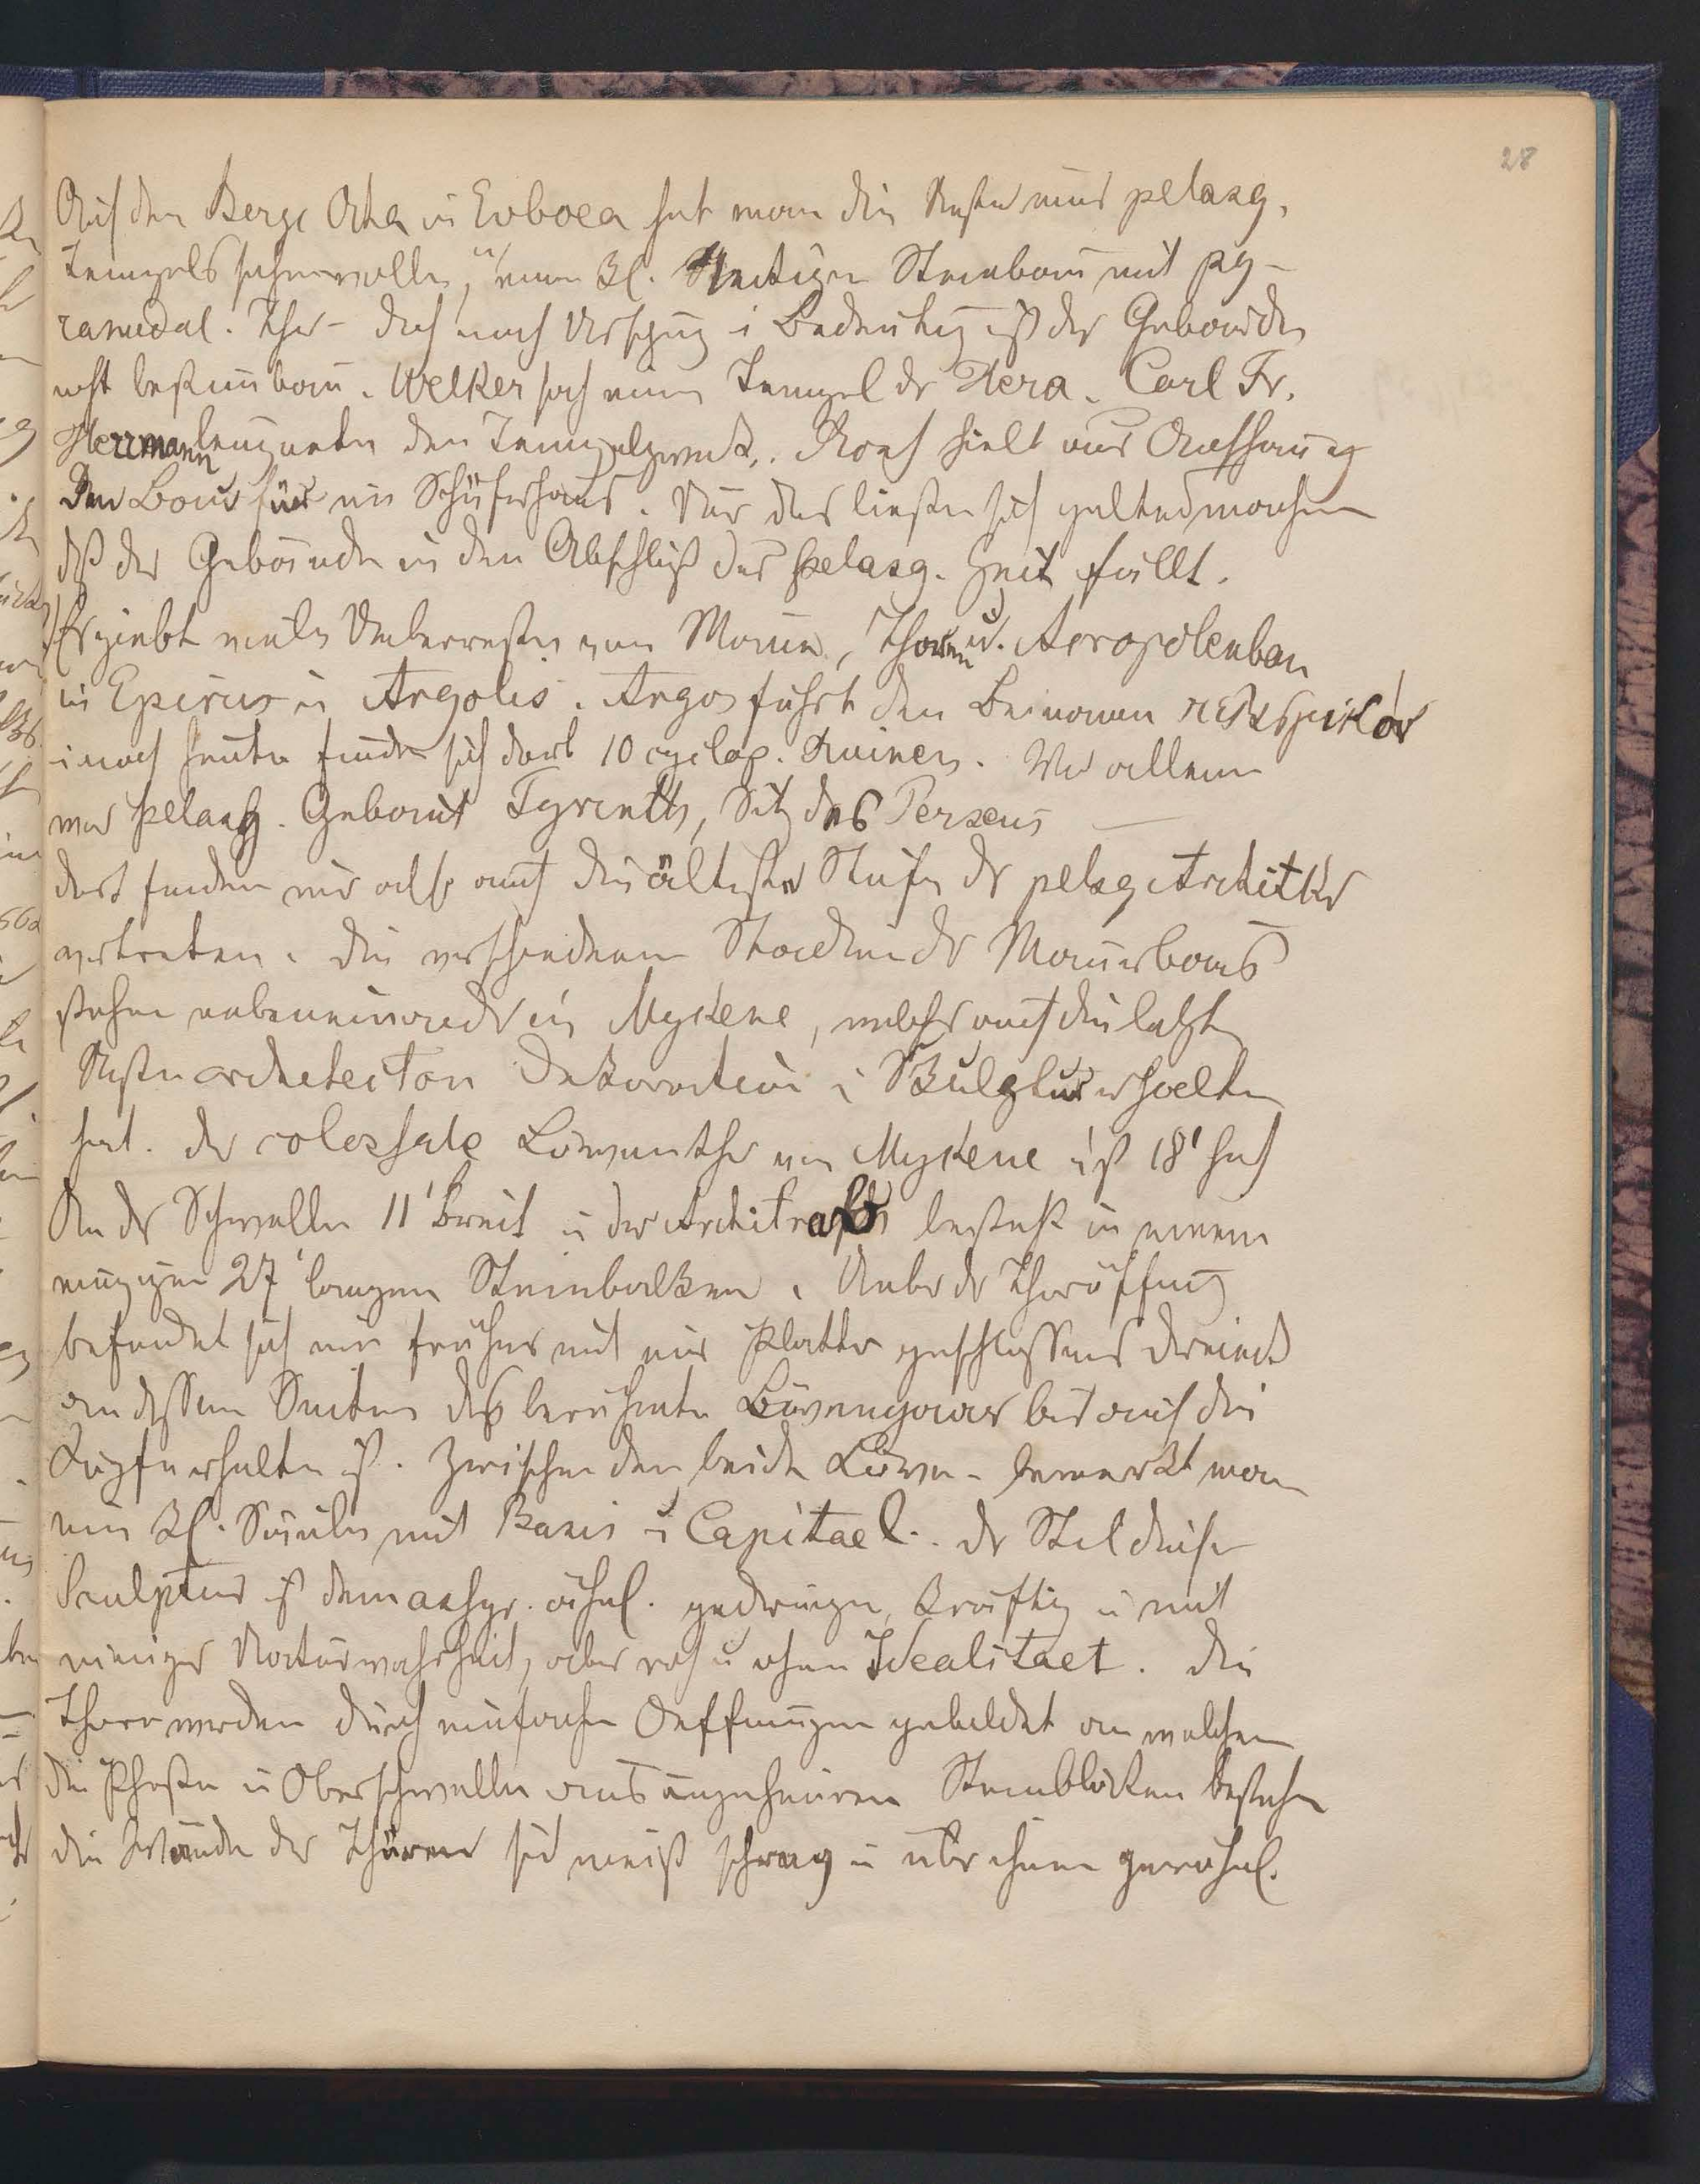 28
Auf dem Berge Ocha in Euboea hat man die Reste eines pelasg.
Tempels sehen wollen, in einem kl. Steinbau mit py-
ramidal. Thor - doch nach Ursprung u Bedeutung ist das Gebaeude
nicht bestimmbar. Welker sah einen Tempel der Hera. Carl Fr.
Herrmann leugnete den Tempelzweck. hielt aus
den Bau für ein Schäferhaus. Nur das liesse sich geltend machen
dß das Gebäude in den Abschluß der pelasg. Zeit fällt.
Es giebt viele Ueberreste von Mauern, Thoren u. Acropolenbau
in Epirus u Argolis. Argos führt den Beinamen
u noch heute finden sich dort 10 cyclop. Ruinen. Vor allem
war pelasg. Gebaut Tyrinth, Sitz des Perseus —
dort finden wir also auch die älteste Stufe der pelasg Architktr
vertreten. Die verschiedenen Stadien des Mauerbaus
stehen nebeneinander in Mykene, welches auch die letzten
Reste architecton Dekoration u Skulptur erhalten
hat. Das colossale Löwenthor von Mykene ist 18' hoch
An der Schwelle 11' breit u der Architrav besteht in einem
einzigen 27' langen Steinbalken. Ueber der Thoröffnung
befindet sich ein früher mit einer Platte geschlossenes Dreieck
an dessen Seiten das berühmte Löwenpaar bis auf die
Köpfe erhalten ist. Zwischen den beiden Löwen - bemerkt man
eine kl. Säule mit Basis u Capitael. Der Stil dieser
Sculptur ist dem assyr. ähnl. gedrungen, kräftig u mit
einiger Naturwahrheit, aber roh u ohne Idealitaet. Die
Thore werden durch einfache Oeffnungen gebildet an welchen
die Pfosten u Oberschwelle aus ungeheuren Steinblöcken bestehen
die Wände der Thüren sind meist schraeg u über ihnen gewöhnl.